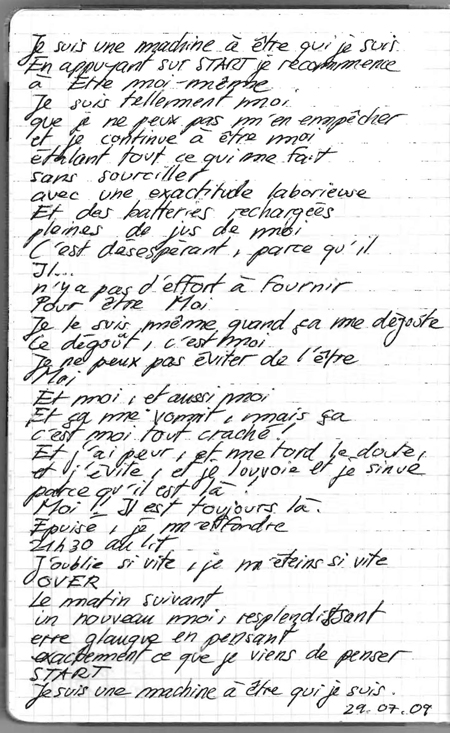 Je suis une machine à être qui je suis.
En appuyant sur START je recommence
à Être moi-même
Je suis tellement moi
que je ne peux pas m'en empêcher
et je continue à être moi
étalant tout ce qui me fait
sans sourciller
avec une exactitude laborieuse
Et des batteries rechargées
pleines de jus de moi
C'est désespérant, parce qu'il
Il...
n'y a pas d'effort à fournir
Pour être Moi
Je le suis même quand ça me dégoûte
Ce dégoût, c'est moi
Je ne peux pas éviter de l'être
Moi
Et moi, et aussi moi
Et ça me vomit, mais ça
c'est moi tout craché !
Et j'ai peur, et me tord le doute,
et j'évite, et je louvoie et je sinue
parce qu'il est là !
Moi ! Il est toujours là.
Epuisé, je m'effondre
21h30 au lit
J'oublie si vite, je m'éteins si vite
OVER
Le matin suivant
un nouveau moi, resplendissant
erre glauque en pensant
exactement ce que je viens de penser
START
Je suis une machine à être qui je suis.
29.07.09